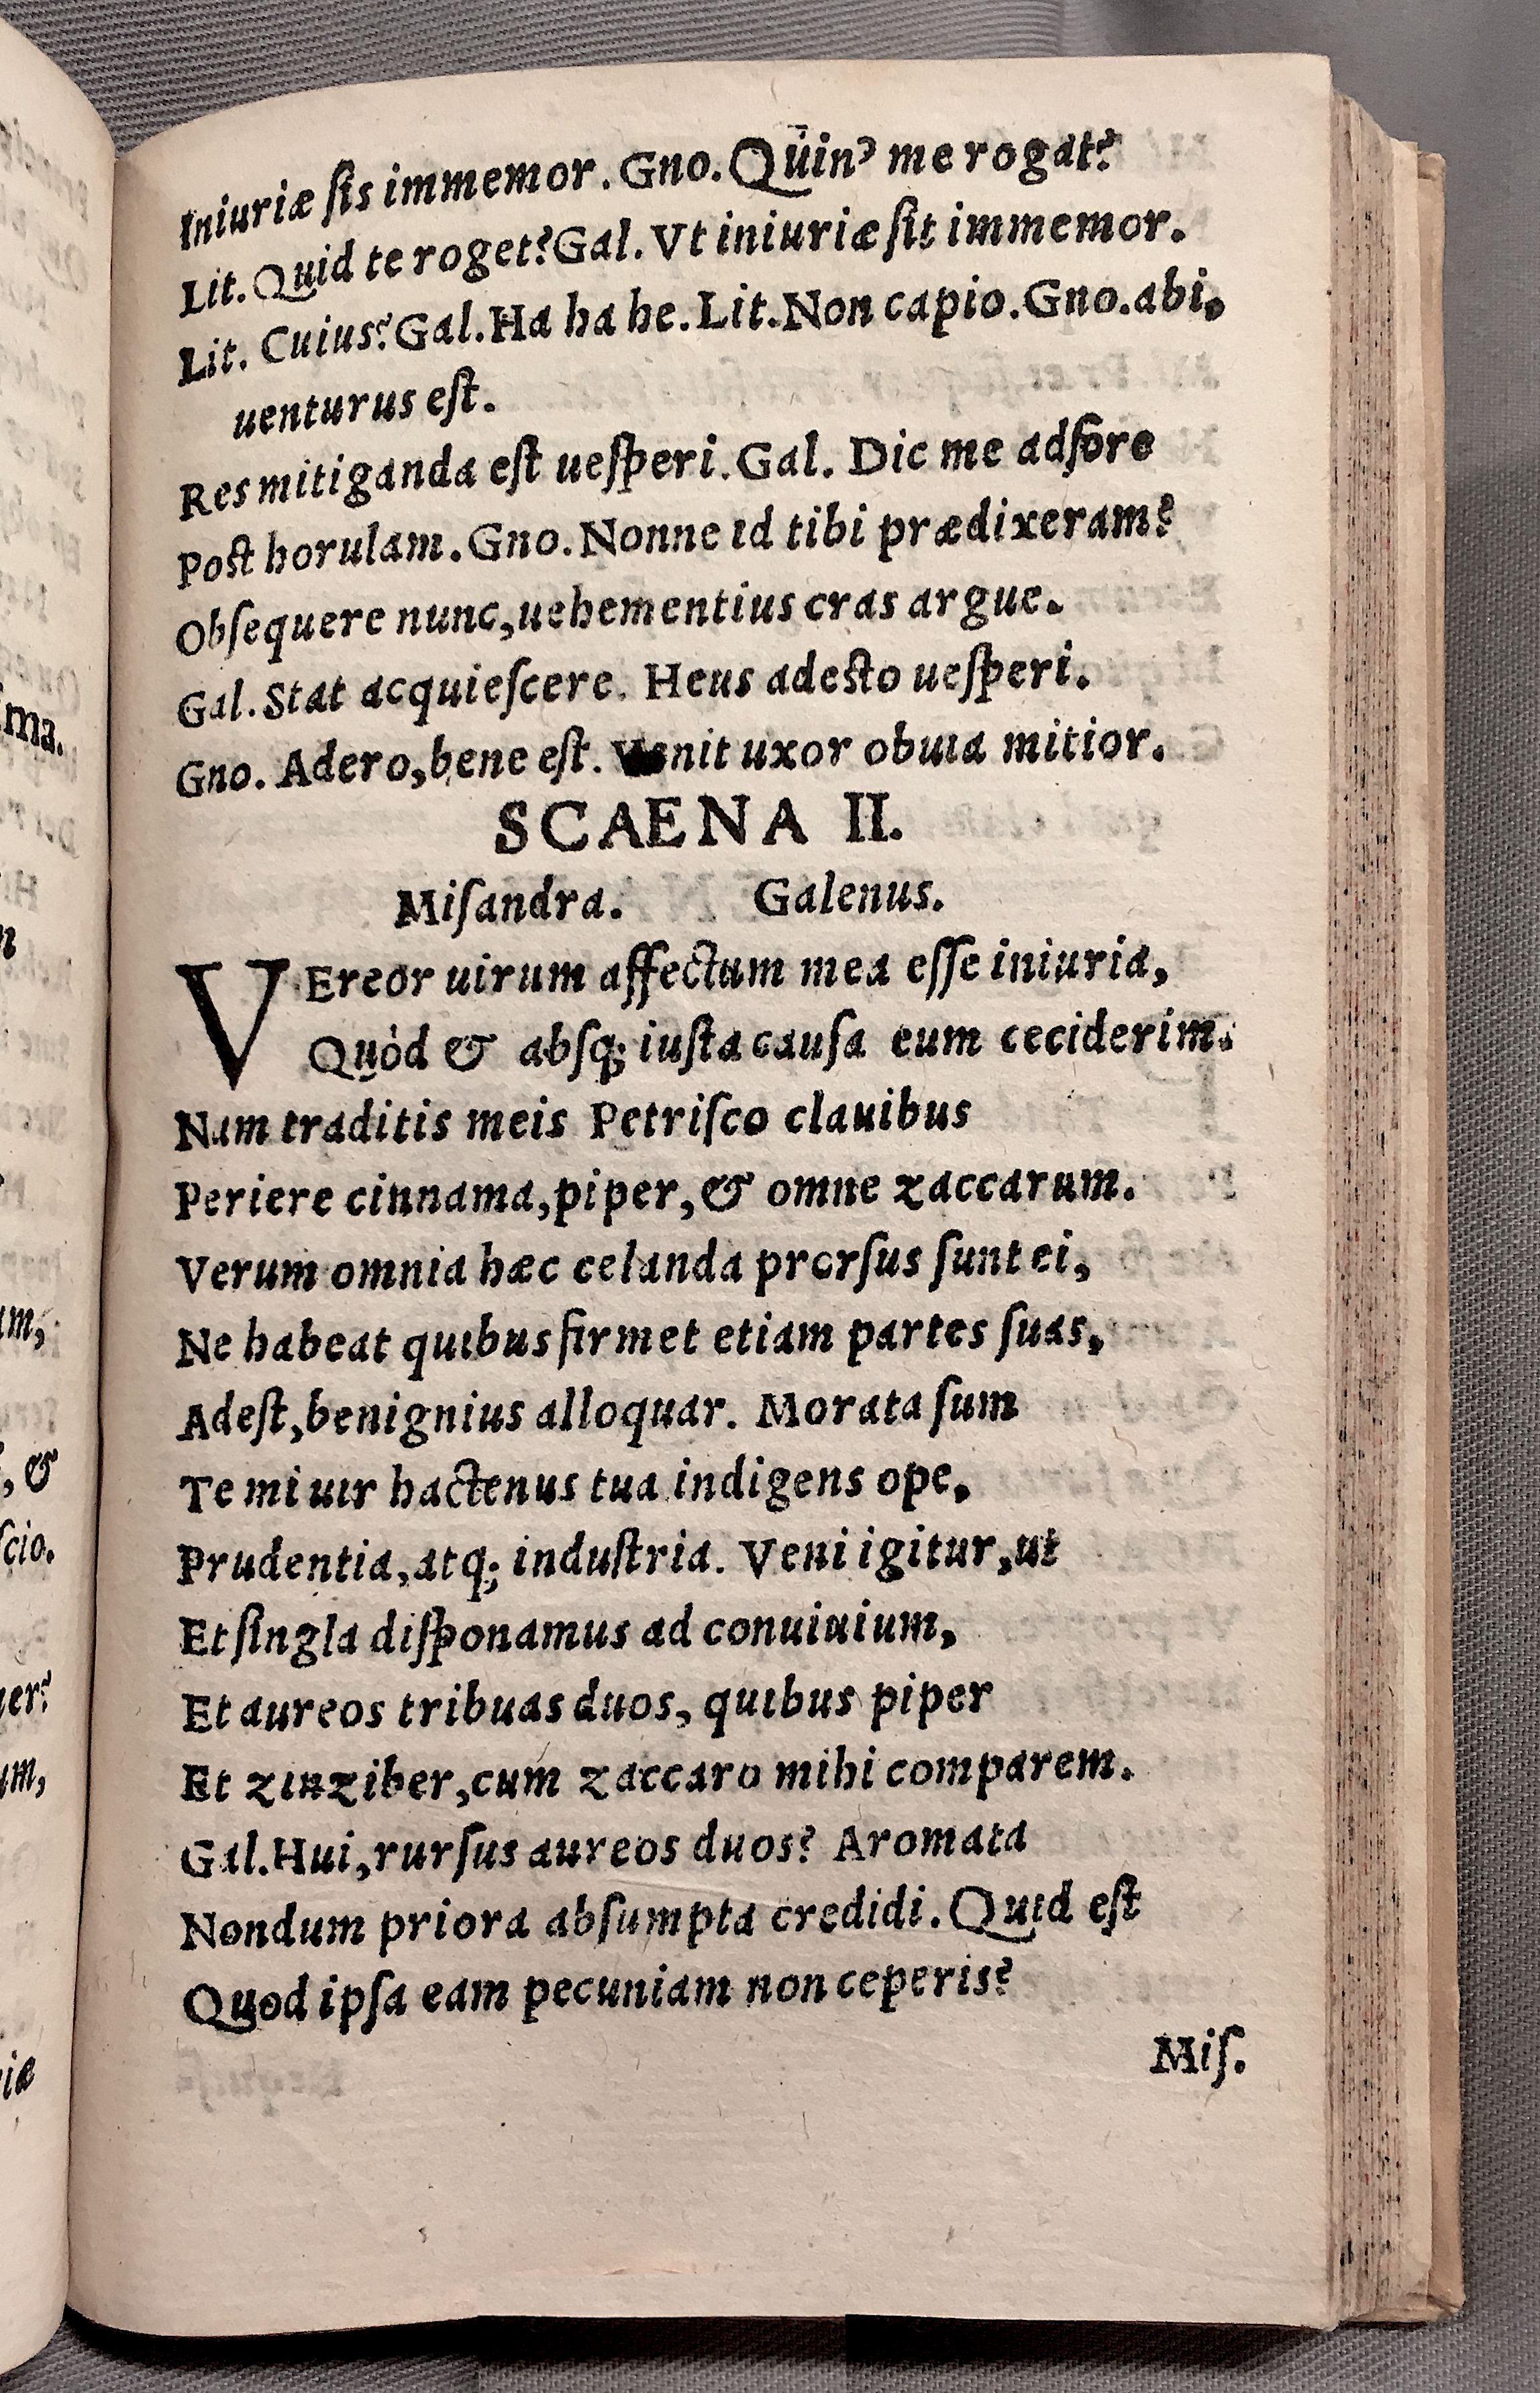 Iniuriæ ſis immemor. Gno. Quin' me rogat?
Lit. Quid te roget? Gal. Vt iniuriæ ſit immemor.
Lit. Cuius? Gal. Ha ha he. Lit. Non capio. Gno. abi,
uenturus eſt.
Res mitiganda eſt ueſperi. Gal. Dic me adfore
Poſt horulam. Gno. Nonne id tibi prædixeram?
Obſequere nunc, uehementius cras argue.
Gal. Stat acquieſcere. Heus adeſto ueſperi.
Gno. Adero, bene eſt. Venit uxor obuia mitior.
SCAENA II.
Miſandra. Galenus.
VEreor uirum affectum mea eſſe iniuria,
Quòd & abſq; iuſta cauſa eum ceciderim.
Nam traditis meis Petriſco clauibus
Periere cinnama, piper, & omne zaccarum.
Verum omnia hæc celanda prorſus ſunt ei,
Ne habeat quibus firmet etiam partes ſuas,
Adeſt, benignius alloquar. Morata ſum
Te mi uir hactenus tua indigens ope,
Prudentia, atq; induſtria. Veni igitur, ut
Et ſingla diſponamus ad conuiuium,
Et aureos tribuas duos, quibus piper
Et zinziber, cum zaccaro mihi comparem.
Gal. Hui, rurſus aureos duos? Aromata
Nondum priora abſumpta credidi. Quid eſt
Quod ipſa eam pecuniam non ceperis?
Miſ.